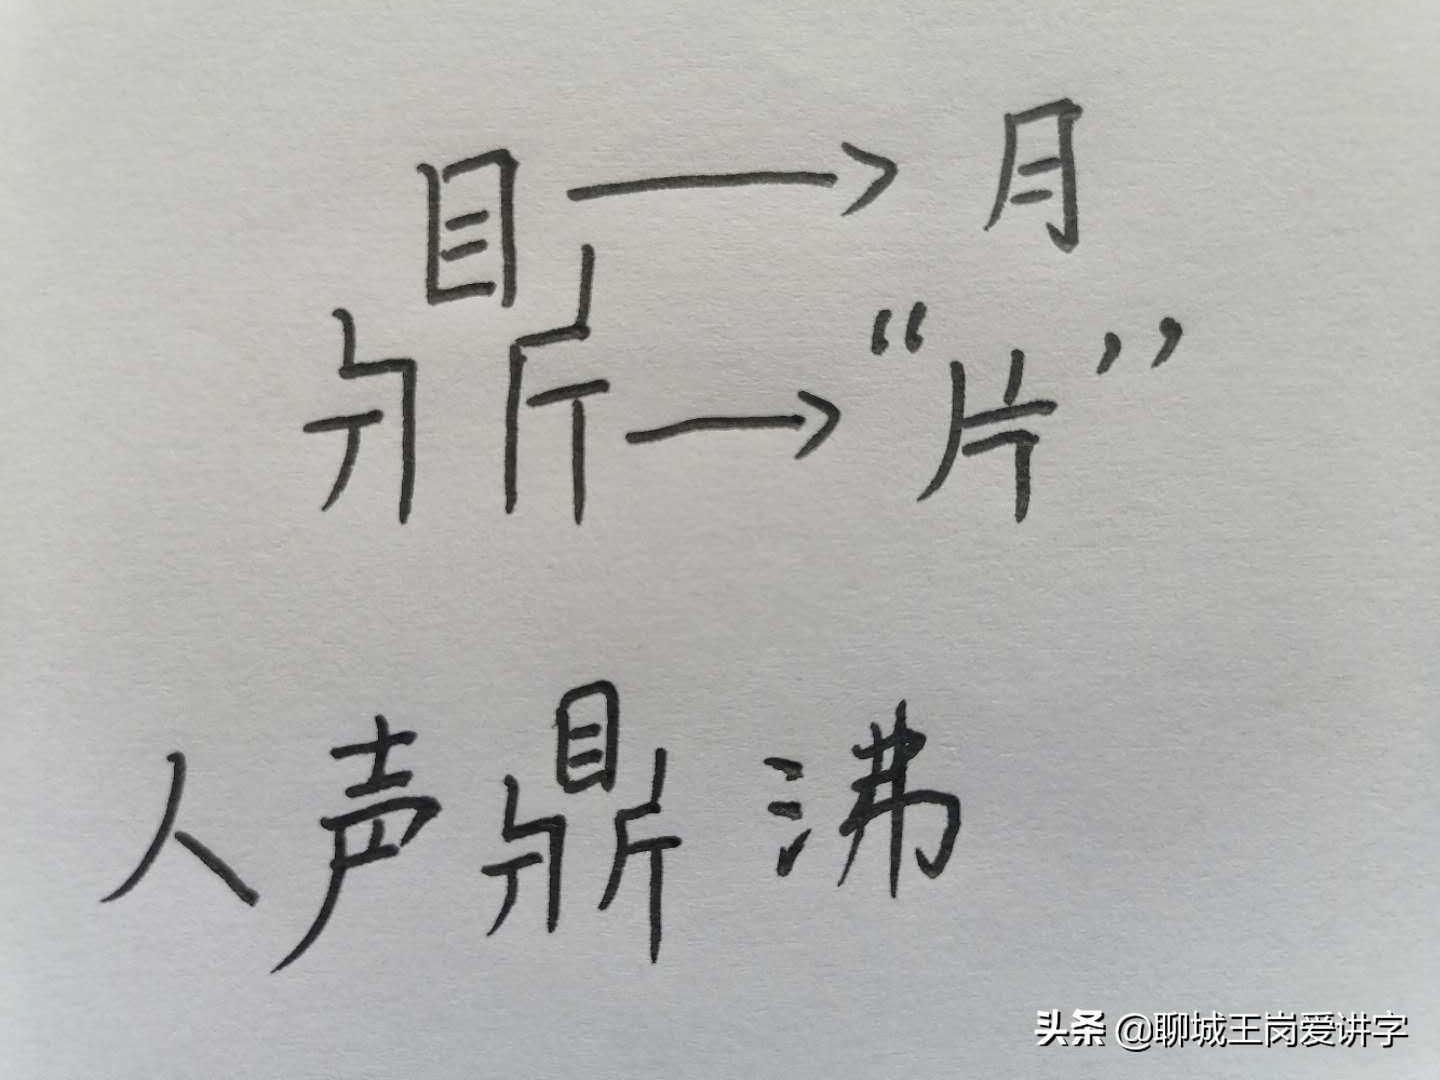 鼎 → 月
→ “片”
人声鼎沸
头条 @聊城王岗爱讲字